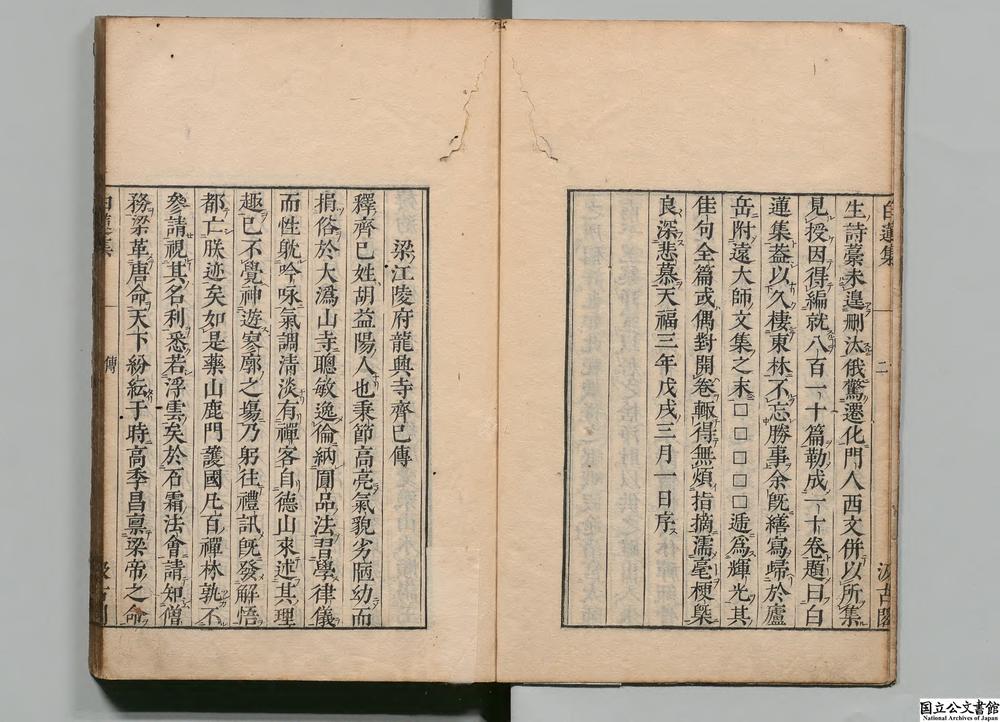 白蓮集 二 汲古閣
生詩藁未遑刪汰俄驚遷化門人西文併以所集
見授因得編就八百一十篇勒成一十卷題曰白
蓮集蓋以久棲東林不忘勝事余旣繕寫歸於廬
岳附遠大師文集之末□□□□□遞爲輝光其
佳句全篇或偶對開卷輒得無煩指摘濡毫梗槩
良深悲慕天福三年戊戌三月一日序
梁江陵府龍興寺齊己傳
釋齊己姓胡益陽人也秉節高亮氣貌劣陋幼而
捐俗於大潙山寺聰敏逸倫納圓品法習學律儀
而性躭吟咏氣調清淡有禪客自德山來述其理
趣已不覺神遊寥廓之塲乃躬往禮訊旣發解悟
都亡朕迹矣如是藥山鹿門護國凡百禪林孰不
參請視其名利悉若浮雲矣於石霜法會請知僧
務梁革唐命天下紛紜于時高季昌禀梁帝之命
白蓮集 傳 汲古閣
国立公文書館
National Archives of Japan